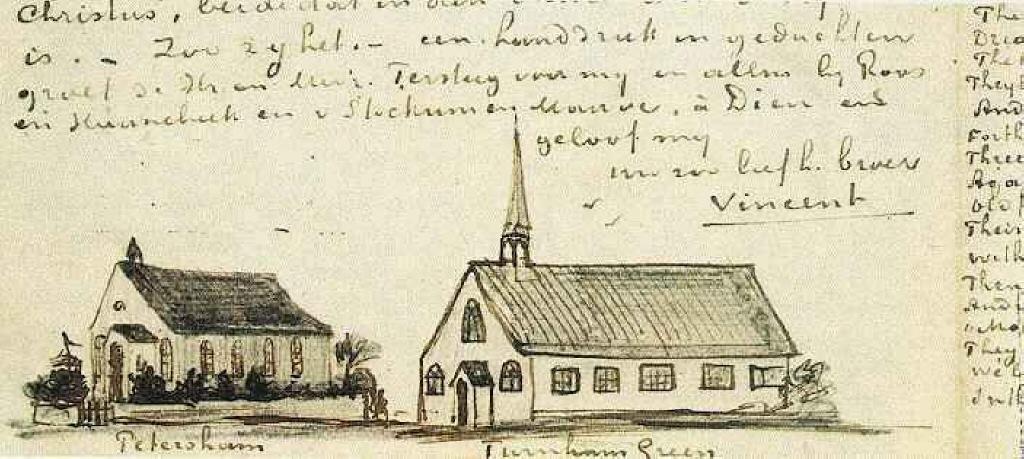 Christus, beide dat en dien
is. – Zoo zij het. – een handdruk in gedachten
groet de Hr en Mevr. Tersteeg voor mij en allen bij Roos
en Haanebeek en v Stockum en Mauve, à Dieu en
geloof mij
uw zoo liefh. broer
Vincent
Petersham
Turnham Green
The
The
They
And
Forth
Three
Aga
Old
Their
with
Then
And
They